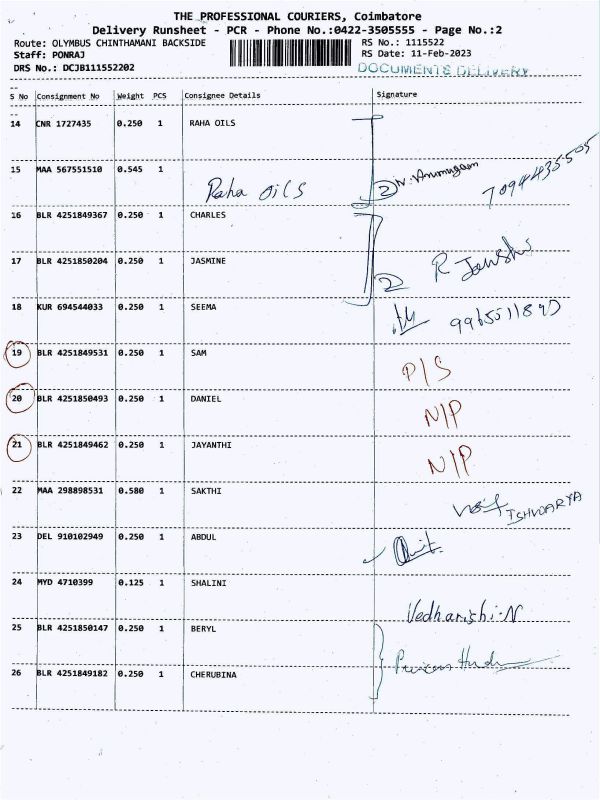 THE PROFESSIONAL COURIERS, Coimbatore
Delivery Runsheet - PCR - Phone No.:0422-3505555 - Page No.:2
Route: OLYMBUS CHINTHAMANI BACKSIDE RS No.: 1115522
Staff: PONRAJ RS Date: 11-Feb-2023
DRS No.: DCJB111552202 DOCUMENTS DELIVERY
S No Consignment No Weight PCS Consignee Details Signature
14 CNR 1727435 0.250 1 RAHA OILS
15 MAA 567551510 0.545 1
Raha oils 2 7094435505
16 BLR 4251849367 0.250 1 CHARLES
17 BLR 4251850204 0.250 1 JASMINE
2 R
18 KUR 694544033 0.250 1 SEEMA
19 BLR 4251849531 0.250 1 SAM
P/S
20 BLR 4251850493 0.250 1 DANIEL
N/P
21 BLR 4251849462 0.250 1 JAYANTHI
N/P
22 MAA 298898531 0.580 1 SAKTHI
ISHVDARYA
23 DEL 910102949 0.250 1 ABDUL
24 MYD 4710399 0.125 1 SHALINI
Vedharishi.N
25 BLR 4251850147 0.250 1 BERYL
26 BLR 4251849182 0.250 1 CHERUBINA